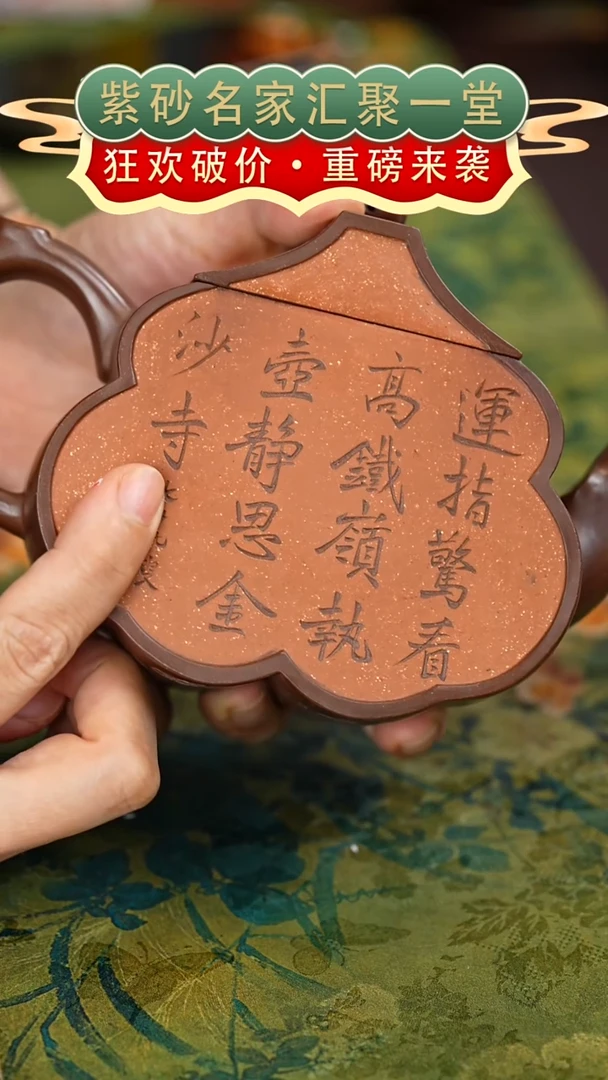 紫砂名家汇聚一堂
狂欢破价·重磅来袭
運指驚看
高鐵嶺執
壺靜思金
沙寺